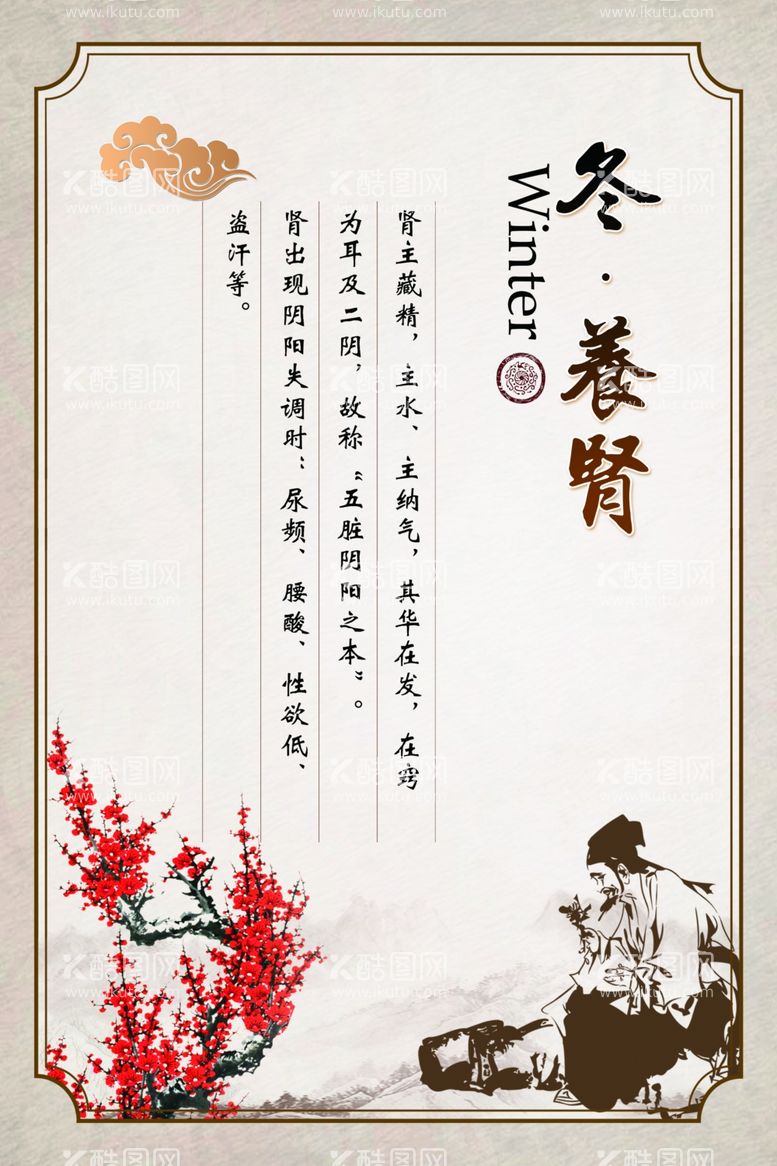 冬·養腎
Winter
肾主藏精，主水、主纳气，其华在发，在窍
为耳及二阴，故称“五脏阴阳之本”。
肾出现阴阳失调时：尿频、腰酸、性欲低、
盗汗等。
酷图网
www.ikutu.com